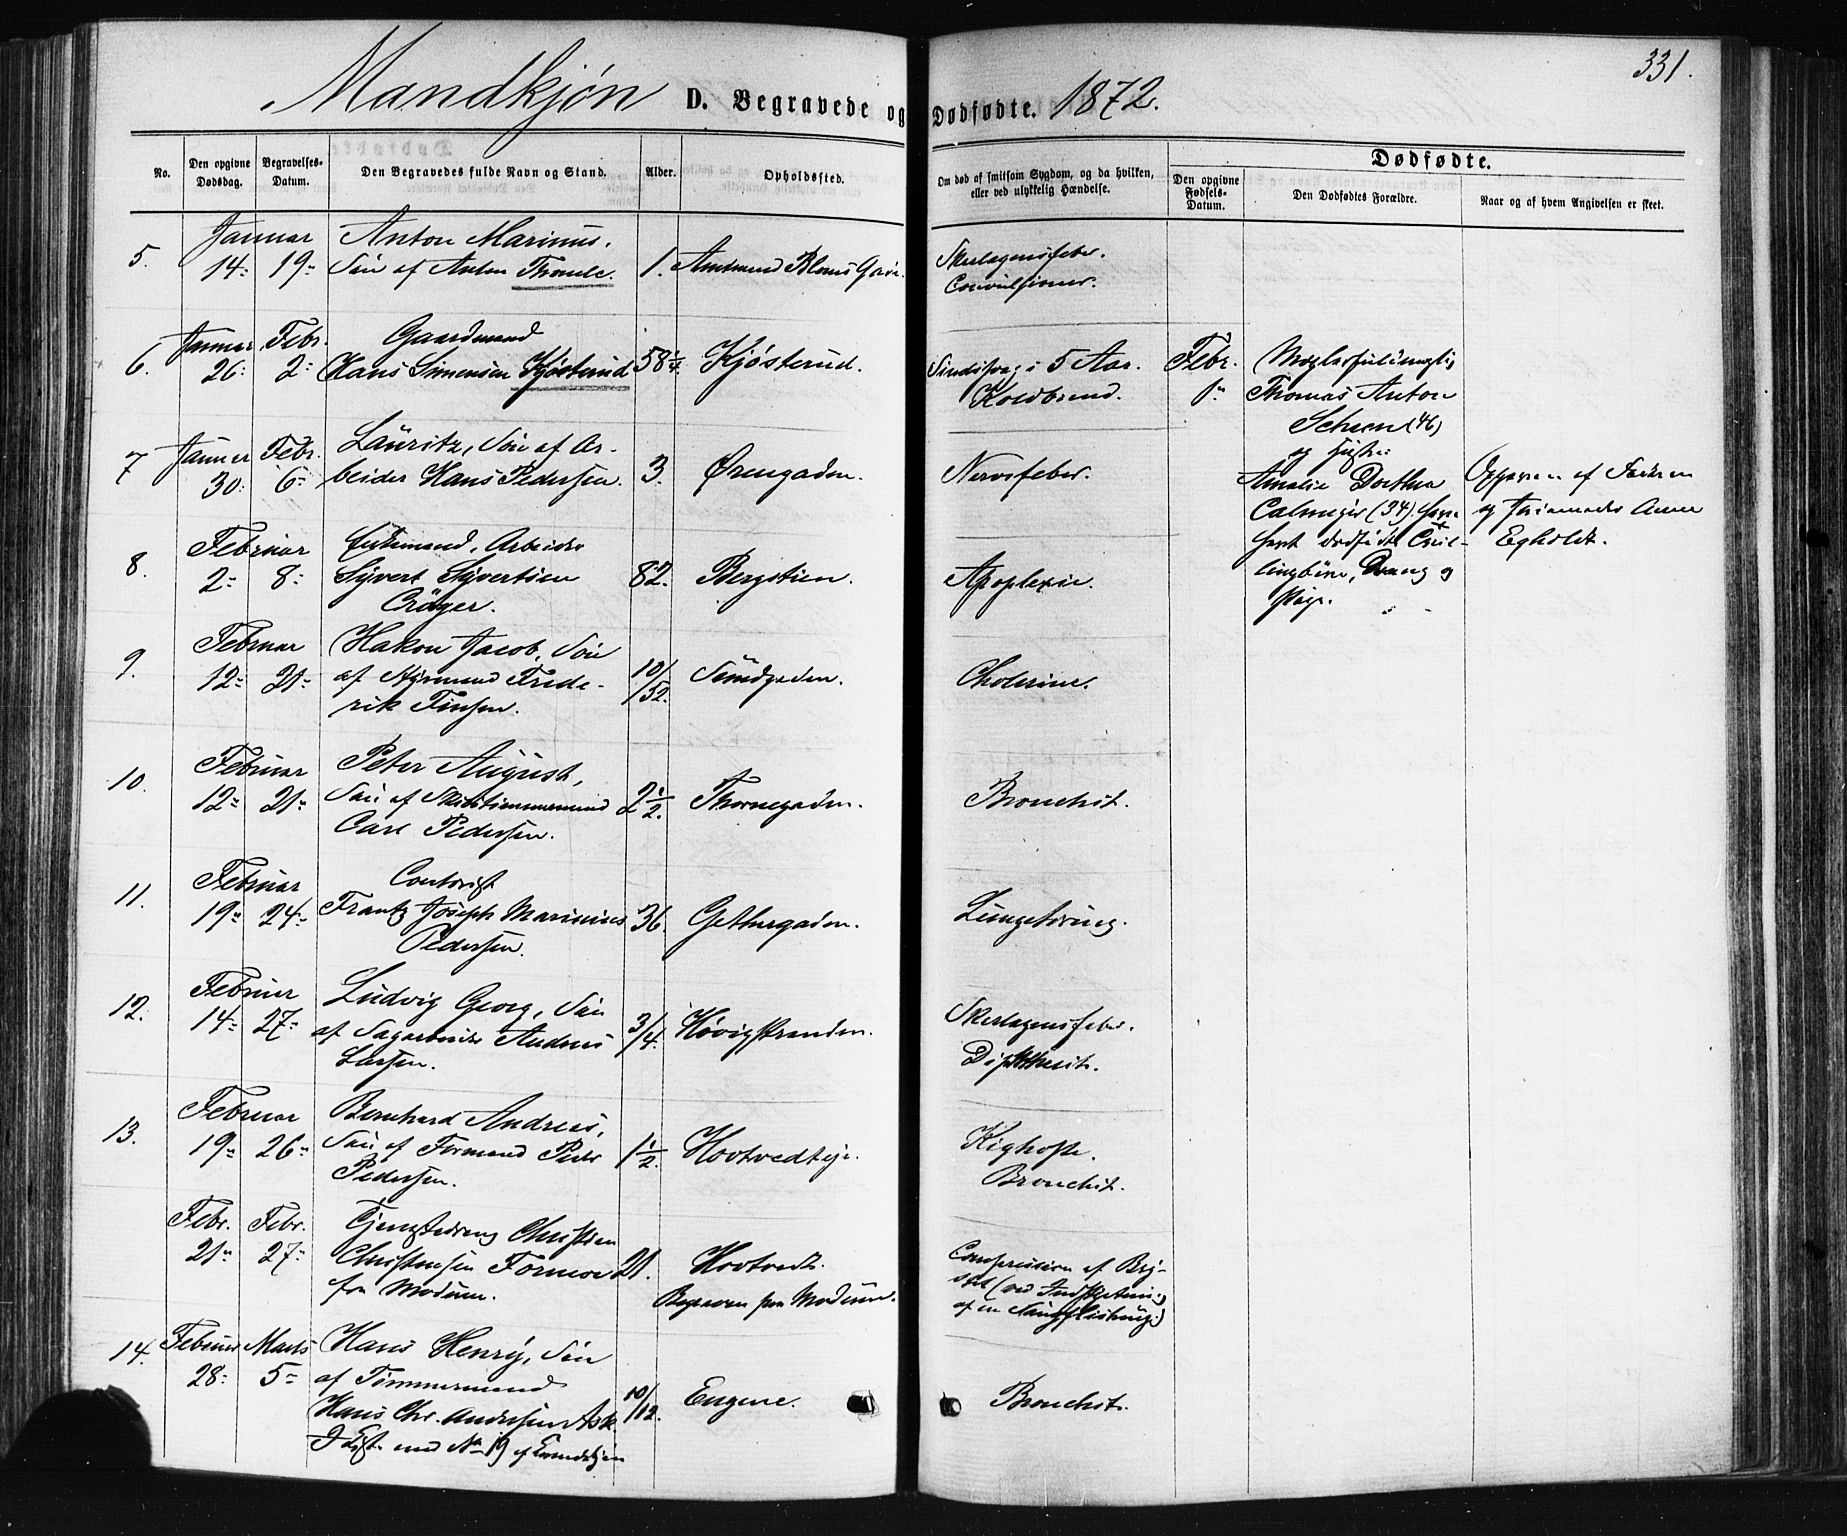 331.
Mandkjøn D. Begravede og Dødfødte. 1872.
No.
Den opgivne Dødsdag.
Begravelses-Datum.
Den Begravedes fulde Navn og Stand.
Alder.
Opholdssted.
Om død af smitsom Sygdom, og da hvilken, eller ved ulykkelig Hændelse.
Dødfødte.
Den opgivne Fødsels-Datum.
Den Dødfødtes Forældre.
Naar og af hvem Angivelsen er skeet.
5. Januar 14. 19.
Anton Marinus.
Søn af Anton Thomle.
1.
Skarlagensfeber.
Convulsioner.
6. Januar 26. Febr. 2.
Gaardmand
Hans Simensen Kjøsterud
58 1/4
Kjøsterud.
Sindssvag i 5 Aar.
Koldbrand.
7 Januar 30. Febr. 6
Lauritz, Søn af Ar-
beider Hans Pedersen.
3.
Ørengaden.
Nervefeber.
8. Februar 2. 8.
Enkemand, Arbeider
Syvert Syvertsen
Crøger.
82.
Bergstien.
Apoplexie.
9. Februar 12. 21.
Hakon Jacob, Søn
af Styrmand Frede-
rik Finsen.
10/52.
Sundgaden.
Cholerine.
10. Februar 12. 21.
Peter August,
Søn af Skibstømmermand
Carl Pedersen.
2 1/2.
Thornegaden.
Bronchit.
11. Februar 19. 24.
Contorist
Frantz Joseph Marinius
Pedersen.
36.
Gethergaden.
Lungetæring.
12. Februar 14. 27.
Ludvig Georg, Søn
af Sagarbeider Andreas
Larsen.
3/4.
Høvigstranden.
Skarlagensfeber.
Diphtherit.
13. Februar 19. 26.
Bernhard Andreas,
Søn af Formand Peder
Pedersen.
1 1/2.
Hovtvedteje.
Kighoste.
Bronchit.
Febr. 21. Febr. 27.
Tjenestedreng Christian
Christensen
fra Modum.
21.
Hovtvedt.
Begraven paa Modum.
Compression af Bry-
stet (ved
af en
14. Februar 28. Marts 5
Hans Henry, Søn
af Tømmermand
Hans Chr. Andersen Ask.
I Kist med No 19 af Kvindekjøn
10/12.
Engene.
Bronchit.
Febr. 1.
Thomas Anton
Scheen (46)
og Hustru
Amalie Dorthea
(34) have
havt dødfødt
Dreng og
Pige.
Opgaven af Faderen
og Jordemoder Anne
Egholdt.